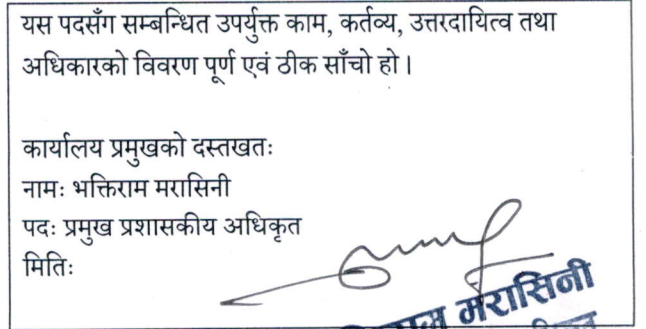 यस पदसँग सम्बन्धित उपर्युक्त काम, कर्तव्य, उत्तरदायित्व तथा
अधिकारको विवरण पूर्ण एवं ठीक साँचो हो।
कार्यालय प्रमुखको दस्तखतः
नामः भक्तिराम मरासिनी
पदः प्रमुख प्रशासकीय अधिकृत
मितिः
मरासिनी